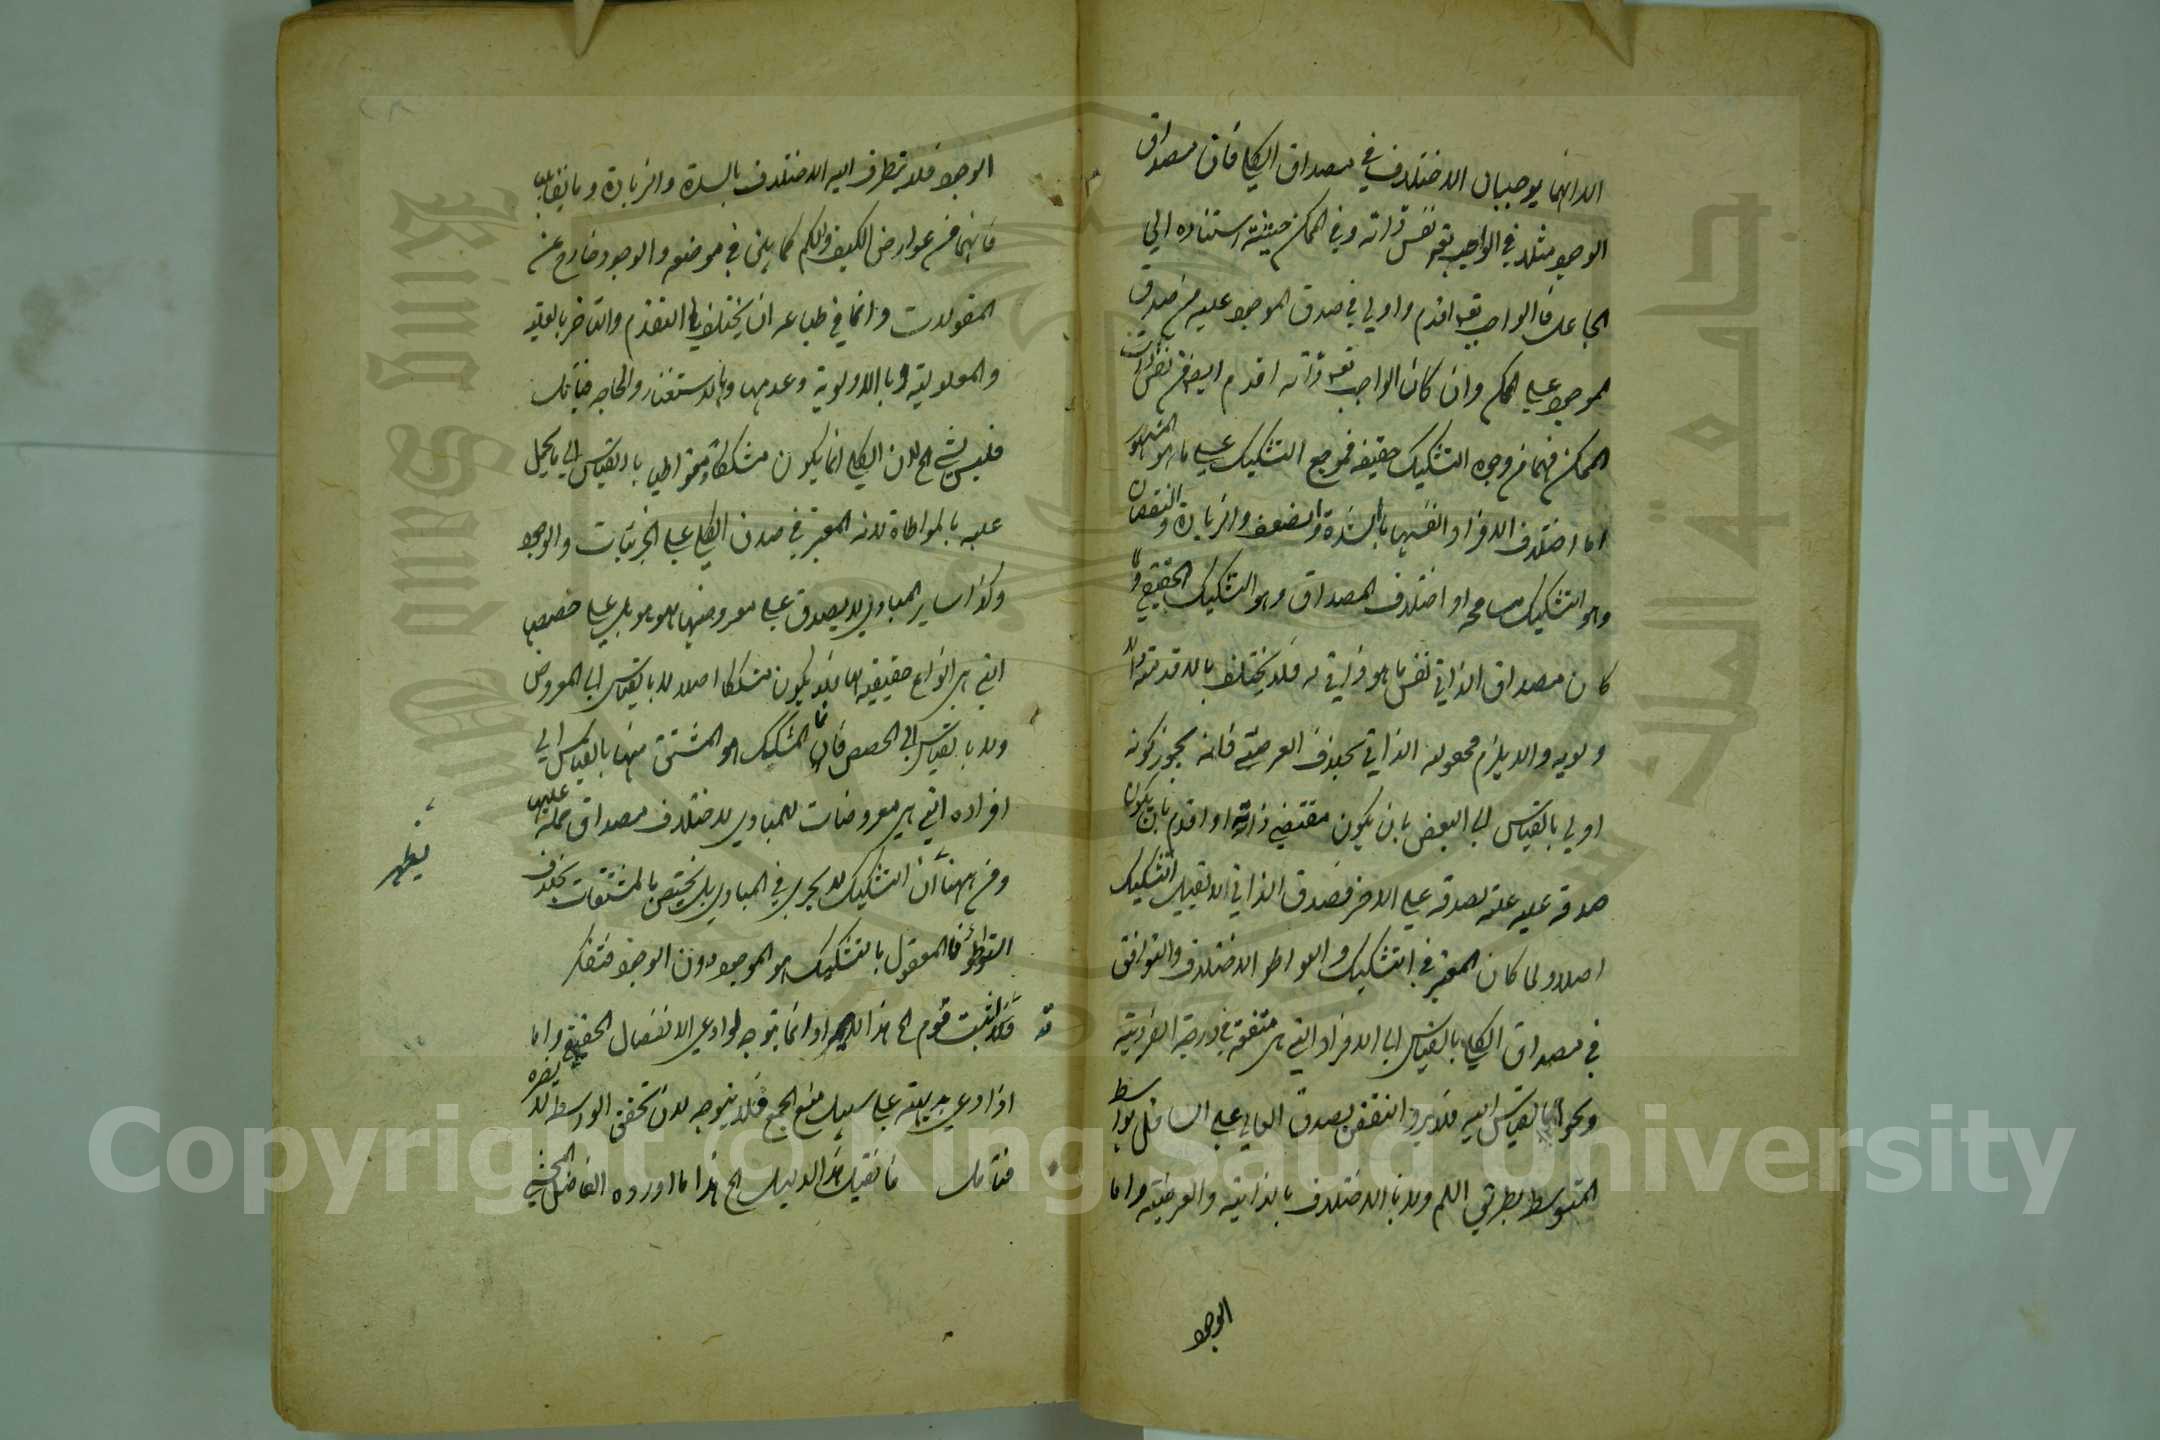 الا انهما يوجبان الاختلاف في مصداق الكلي فان مصداق
الوجود مثلا في الواجب تعه نفس ذاته وفي الممكن حيثية استناده الي
الجاعل فالواجب تعه اقدم واولي في صدق الموجود عليه من صدق
الموجود علي الممكن وان كان الواجب تعه ذاته اقدم ايضا من نفس ذات
الممكن فهما من وجوه التشكيك حقيقة فمرجع التشكيك علي ما هو المشهور
اما اختلاف الافراد انفسها بالشدة والضعف والزيادة والنقصان
وهو التشكيك مسامحة او اختلاف المصداق وهو التشكيك الحقيقي ولما
كان مصداق الذاتي نفس ما هو ذاتي له فلا يختلف بالاقدمية والا
ولوية والا يلزم مجعولية الذاتي بخلاف العرضي فانه يجوز كونه
اولي بالقياس الي البعض بان يكون مقتضي ذاته او اقدم بان يكون
صدقه عليه علة لصدقه علي الاخر فصدق الذاتي لا يقبل التشكيك
اصلا ولما كان المعتبر في التشكيك والتواطؤ الاختلاف والتوافق
في مصداق الكلي بالقياس الي الافراد التي هي متفقة في درجة الفردية
ونحوها بالقياس اليه فلا يرد النقض بصدق العالي علي السافل بواسطة
المتوسط بطريق اللم ولا بالاختلاف بالذاتية والعرضية واما
الوجود
الوجود فلا يتطرق اليه الاختلاف بالشدة والزيادة وما يقابلهما
فانهما من عوارض الكيف والكم كما بين في موضعه والوجود خارج عن
المقولات وانما في طباعه ان يختلف بالتقدم والتاخر بالعلية
والمعلولية وبالاولوية وعدمها وبالاستغناء والحاجة فتامل
فليس بشي الخ لان الكلي انما يكون مشككا ومتواطيا بالقياس الي ما يحمل
عليه بالمواطاة لانه المعتبر في صدق الكلي علي الجزئيات والوجود
وكذا ساير المبادي لا يصدق علي معروضها بهو هو بل علي حصصها
التي هي انواع حقيقية لها فلا يكون مشككا اصلا لا بالقياس الي المعروض
ولا بالقياس الي الحصص فانما المشكك هو المشتق منها بالقياس الي
افراده التي هي معروضات للمبادي لاختلاف مصداق حمله عليها
ومن ههنا يظهر ان التشكيك لا يجري في المبادي بل يختص بالمشتقات بخلاف
التواطؤ فالمقول بالتشكيك هو الموجود دون الوجود فتفكر
قه فلا يثبت قدوم الخ هذا الايراد انما يتوجه لو ادعي الانفصال الحقيقي واما
اذا ادعي بديهته علي سبيل منع الجمع فلا يتوجه لان تحقق الواسطة لا يضره
فتامل فان قيل هذا الدليل الخ هذا ما اورده الفاضل المحشي
Copyright © King Saud University
King Saud University
جامعة الملك سعود